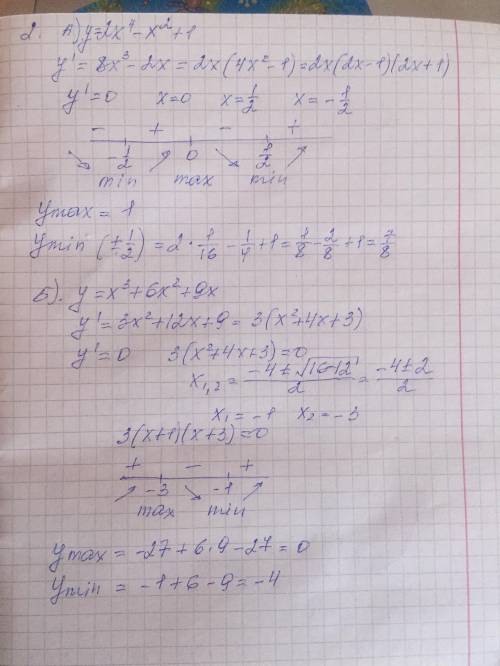 2. А) y=2x⁴-x²+1
y'=8x³-2x=2x(4x²-1)=2x(2x-1)(2x+1)
y'=0 x=0 x=1/2 x=-1/2
- + - +
-1/2 0 1/2
min max min
ymax = 1
ymin (±1/2)=2·1/16-1/4+1=1/8-2/8+1=7/8
Б). y=x³+6x²+9x
y'=3x²+12x+9=3(x²+4x+3)
y'=0 3(x²+4x+3)=0
x₁,₂=(-4±√16-12)/2=(-4±2)/2
x₁=-1 x₂=-3
3(x+1)(x+3)=0
+ - +
-3 -1
max min
ymax = -27+6·9-27=0
ymin = -1+6-9=-4